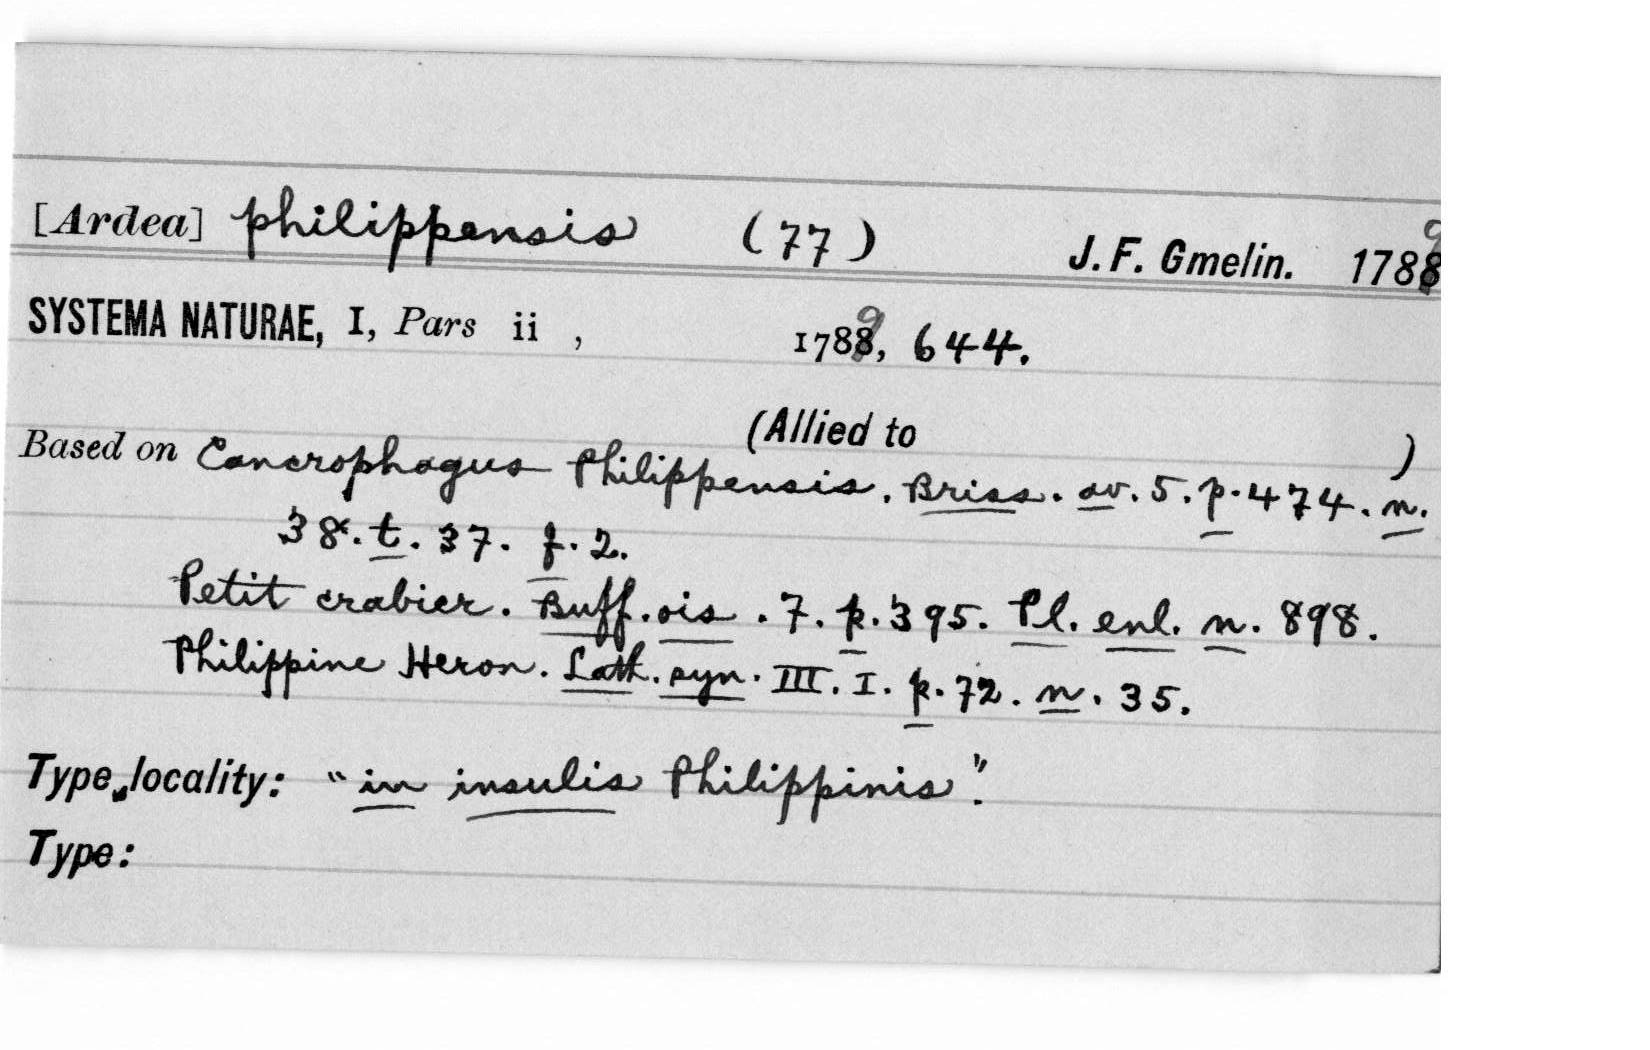 [Ardea] philippensis (77) J. F. Gmelin. 1789
SYSTEMA NATURAE, I, Pars ii, 1789, 644.
(Allied to )
Based on Cancrophagus Philippensis. Briss. av. 5. p. 474. n.
38. t. 37. f. 2.
Petit crabier. Buff. ois. 7. p. 395. Pl. enl. n. 898.
Philippine Heron. Lath. syn. III. I. p. 72. n. 35.
Type locality: "in insulis Philippinis".
Type: